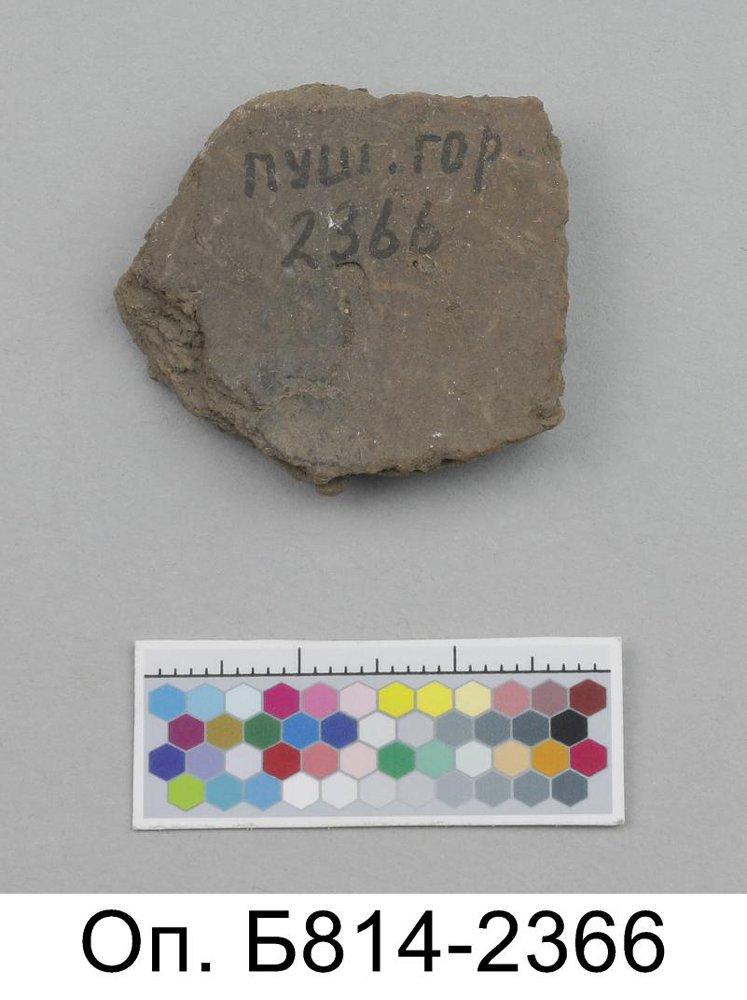 ПУШ. ГОР.
2366
Оп. Б814-2366